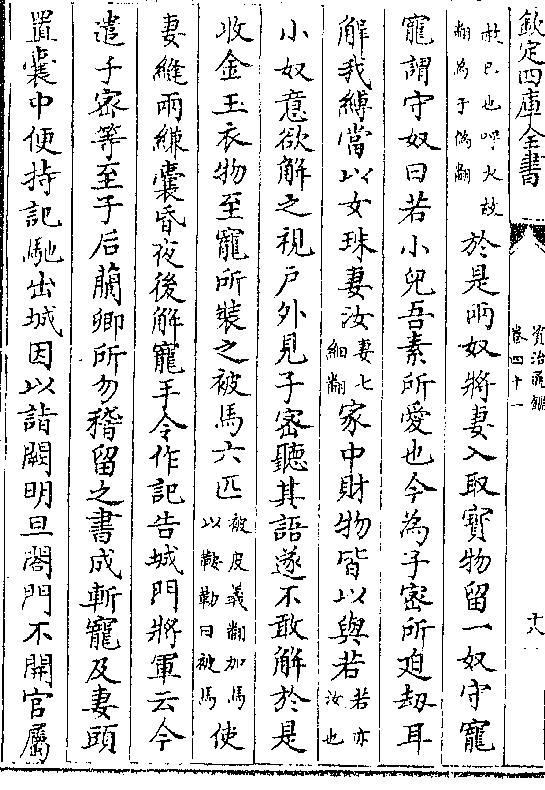 欽定四庫全書
資治通鑑
卷四十一
十八
赦已也呼火故
翻為于偽翻
於是兩奴將妻入取寳物留一奴守寵
寵謂守奴曰若小兒吾素所愛也今為子密所廹刧耳
解我縛當以女珠妻汝妻七細翻家中財物皆以與若若亦汝也
小奴意欲解之視戸外見子密聽其語遂不敢解於是
收金玉衣物至寵所裝之被馬六匹被皮義翻加馬以鞍勒曰被馬使
妻縫兩縑囊昏夜後解寵手令作記告城門將軍云今
遣子密等至子后蘭卿所勿稽留之書成斬寵及妻頭
置囊中便持記馳出城因以詣闕明旦閤門不開官屬